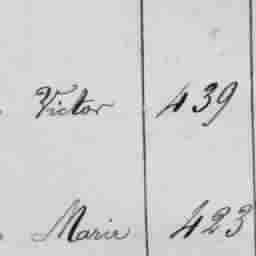 Victor 439
Marie 423